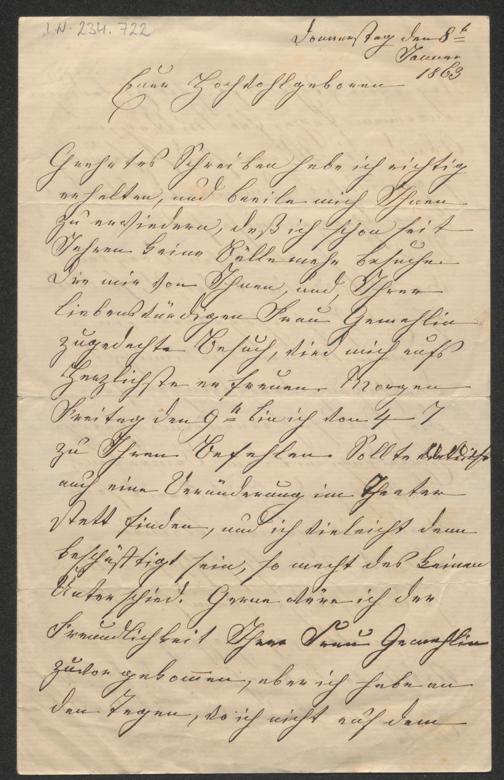 I.N. 234.722
Donnerstag den 8t
Jänner
1863
Euer Hochwohlgeboren
Geehrtes Schreiben habe ich richtig
erhalten, und beeile mich Ihnen
zu erwiedern, daß ich schon seit
Jahren keine Bälle mehr besuche.
Die mir von Ihnen, und, Ihrer
liebenswürdigen Frau Gemahlin
zugedachte Besuch, wird mich aufs
Herzlichste erfreuen. Morgen
Freitag den 9t bin ich von 4–7
zu Ihren Befehlen. Sollte
auch eine Veränderung im Theater
statt finden, und ich vieleicht dann
beschäftigt sein, so macht das keinen
Unterschied. Gerne wäre ich der
Freundlichkeit Ihrer Frau Gemahlin
zuvorgekommen, aber ich habe an
den Tagen, wo ich nicht auf dem